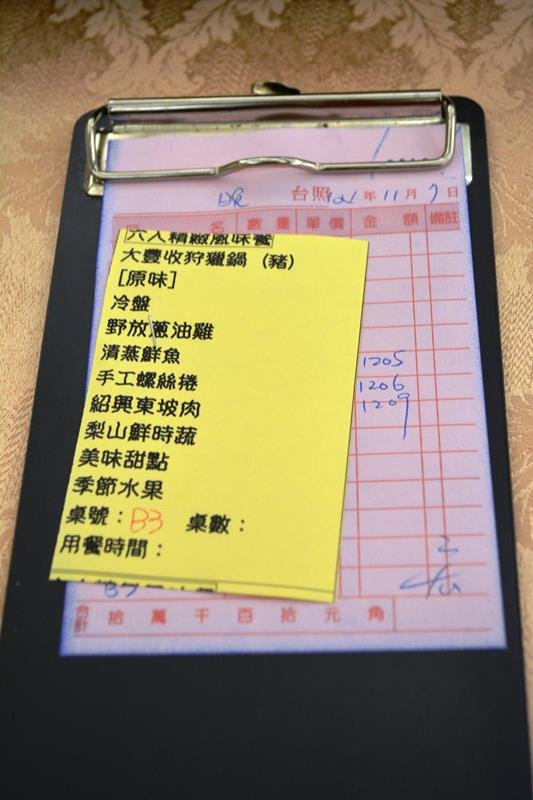 台照 101年11月7日
品名 數量 單價 金額 備註
六人精緻風味餐
大豐收狩獵鍋（豬）
[原味]
冷盤
野放蔥油雞
清蒸鮮魚
1205
手工螺絲捲
1206
紹興東坡肉
1209
梨山鮮時蔬
美味甜點
季節水果
桌號：B3 桌數：
用餐時間：
合計 拾 萬 千 百 拾 元 角